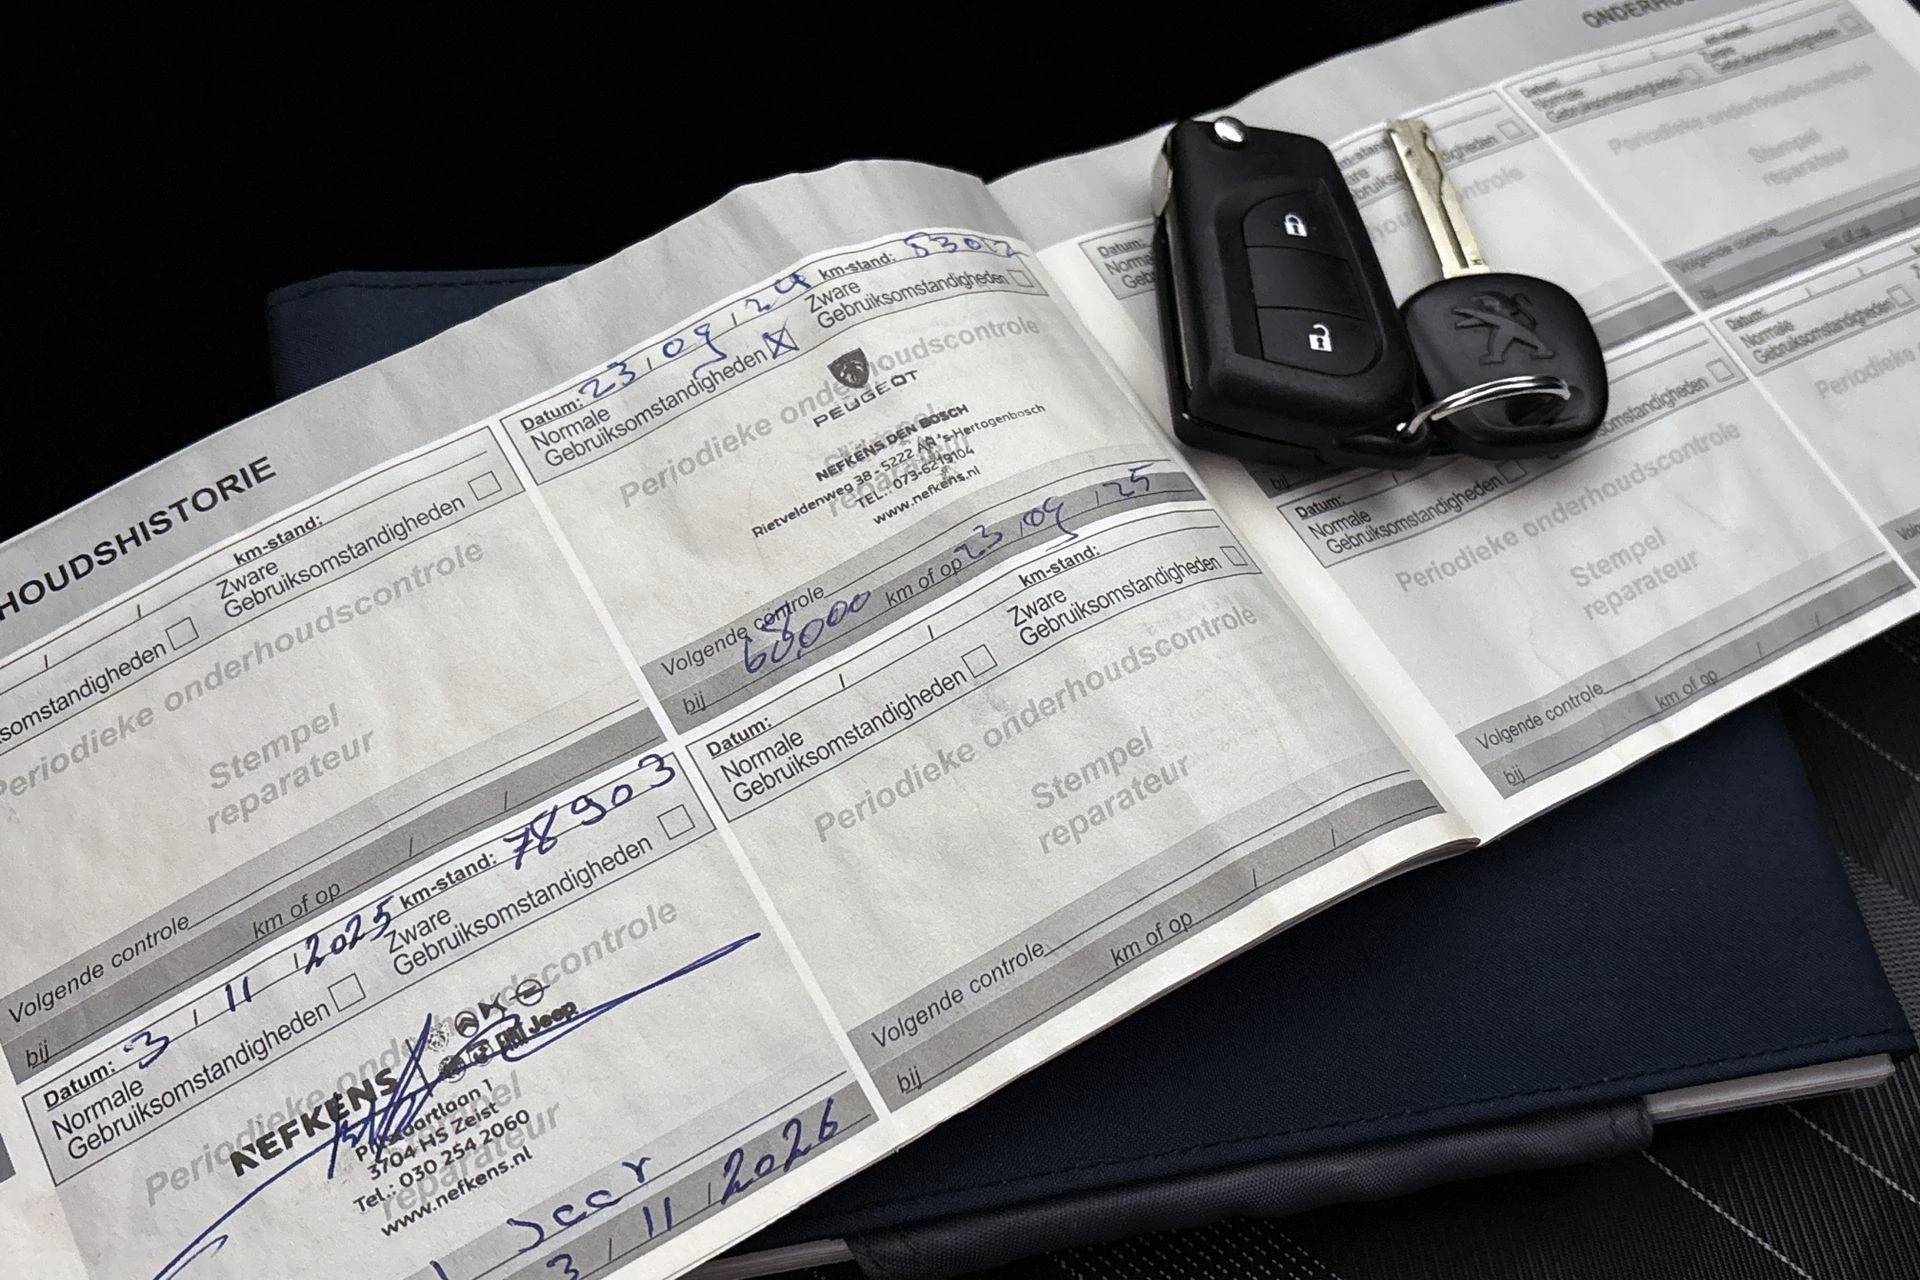 HOUDSHISTORIE
km-stand:
Zware
Gebruiksomstandigheden
somstandigheden
Periodieke onderhoudscontrole
Stempel
reparateur
Volgende controle
bij
km of op
Datum: 3 / 11 / 2025 km-stand: 78903
Normale
Gebruiksomstandigheden
Zware
Gebruiksomstandigheden
Periodieke onderhoudscontrole
Stempel
reparateur
NEFKENS
Jeep
3704 HS Zeist
Tel.: 030 254 2060
www.nefkens.nl
Jaar
3 / 11 / 2026
Datum: 23 / 09 / 24 km-stand:
Normale
Gebruiksomstandigheden
Zware
Gebruiksomstandigheden
Periodieke onderhoudscontrole
Stempel
reparateur
PEUGEOT
NEFKENS DEN BOSCH
Rietveldenweg 38 - 5222 AR 's-Hertogenbosch
www.nefkens.nl
Volgende controle
bij 68,000 km of op 23 / 09 / 25
Datum: km-stand:
Normale
Gebruiksomstandigheden
Zware
Gebruiksomstandigheden
Periodieke onderhoudscontrole
Stempel
reparateur
Volgende controle
bij
km of op
Datum:
Datum:
Normale
Gebruiksomstandigheden
Periodieke onderhoudscontrole
Stempel
reparateur
Volgende controle
bij
km of op
Datum:
Normale
Gebruiksomstandigheden
Periodieke onderhoudscontrole
Stempel
reparateur
Volgende controle
bij
km of op
Datum:
Normale
Gebruiksomstandigheden
Periodieke